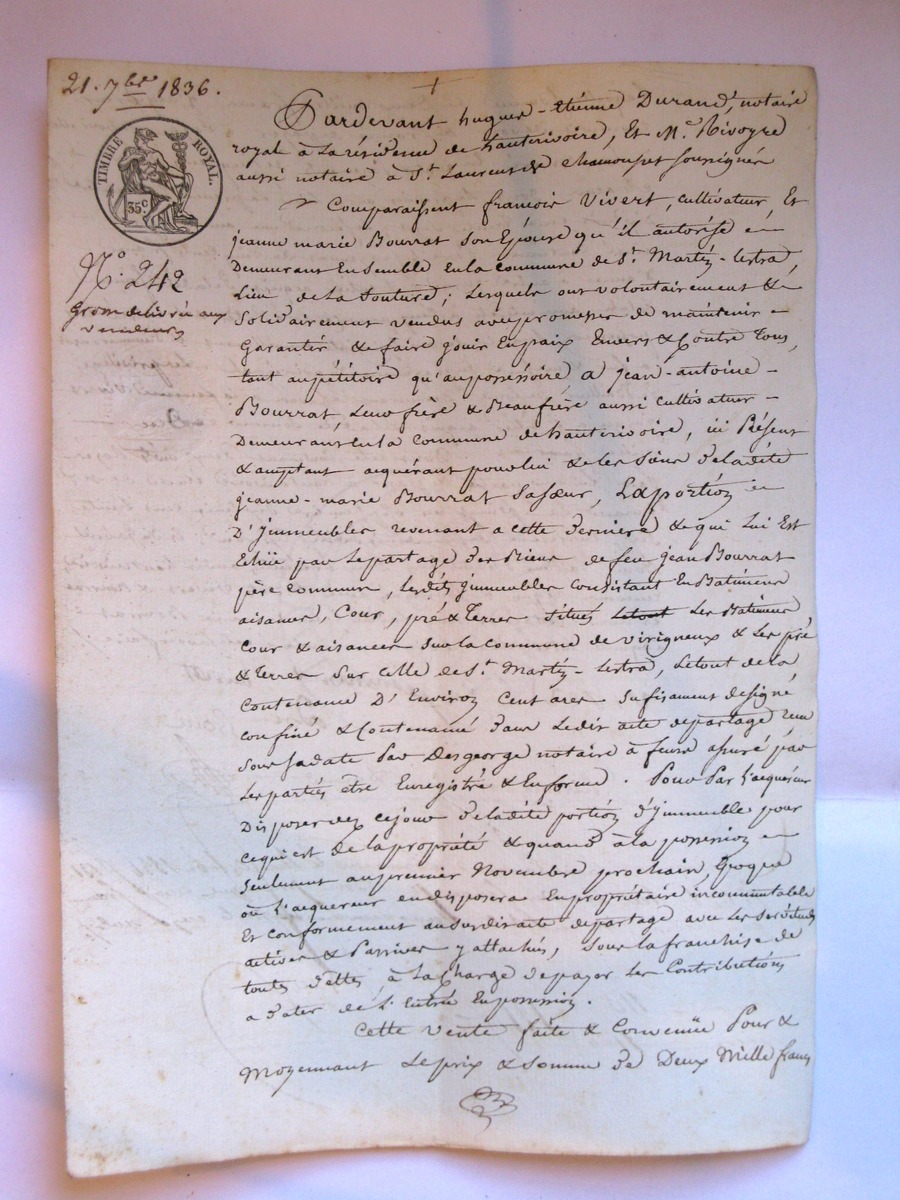 21. 7bre 1836.
TIMBRE ROYAL.
35 c
N° 242
grosse délivrée aux
vendeurs
Pardevant hugues-Etienne Durand, notaire
royal à La résidence de hauterivoire, Et Me Rivoyre
aussi notaire à St Laurent de chamousset soussignés
Comparaissent francois Vivert, cultivateur, Et
jeanne marie Bourrat son Epouse qu'il autorise
Demeurant Ensemble En la commune de St Martin-lestra,
Lieu de La ; Lesquels ont volontairement &
Solidairement vendus avec promesse de maintenir
Garantir & faire jouir En paix Envers & Contre tous,
tant au pétitoire qu'au possessoire a jean-antoine
Bourrat Leur frère & Beaufrère aussi cultivateur
Demeurant En la commune de hauterivoire, ici Présent
& acceptant acquérant pour lui & les Siens de ladite
jeanne-marie Bourrat Sa sœur, La portion
D'jmmeubles revenant a cette dernière & qui Lui Est
Echue par Le partage des Biens de feu jean Bourrat
père commun, Lesdits jmmeubles Consistant En Batiments
aisances, Cour, pré & Terres Situés Letout Les Batiments
Cour & aisances sur la commune de virigneux & Les pré
& terres Sur celle de St Martin-lestra, Letout de la
Contenance D'Environ Cent ares Sufisament designé
confiné & Contenancé dans Ledit acte departage recu
Sous sa date Par Desgeorge notaire à feurs assuré par
Les parties être Enregistré & En forme. Pour Par L'acquéreur
Disposer dez cejour de ladite portion d'jmmeuble pour
cequi est de la propriété & quand à la possession
Seulement au premier Novembre prochain, Epoque
où L'acquereur en disposera En propriétaire incommutable
Et conformement au susdit acte departage avec Les Servitudes
actives & Passives y attachés, sous la franchise de
toutes dettes, à La Charge depayer Les Contributions
a dater de L'Entrée En possession.
Cette vente faite & Convenüe Pour &
Moyennant Le prix & Somme de Deux Mille francs